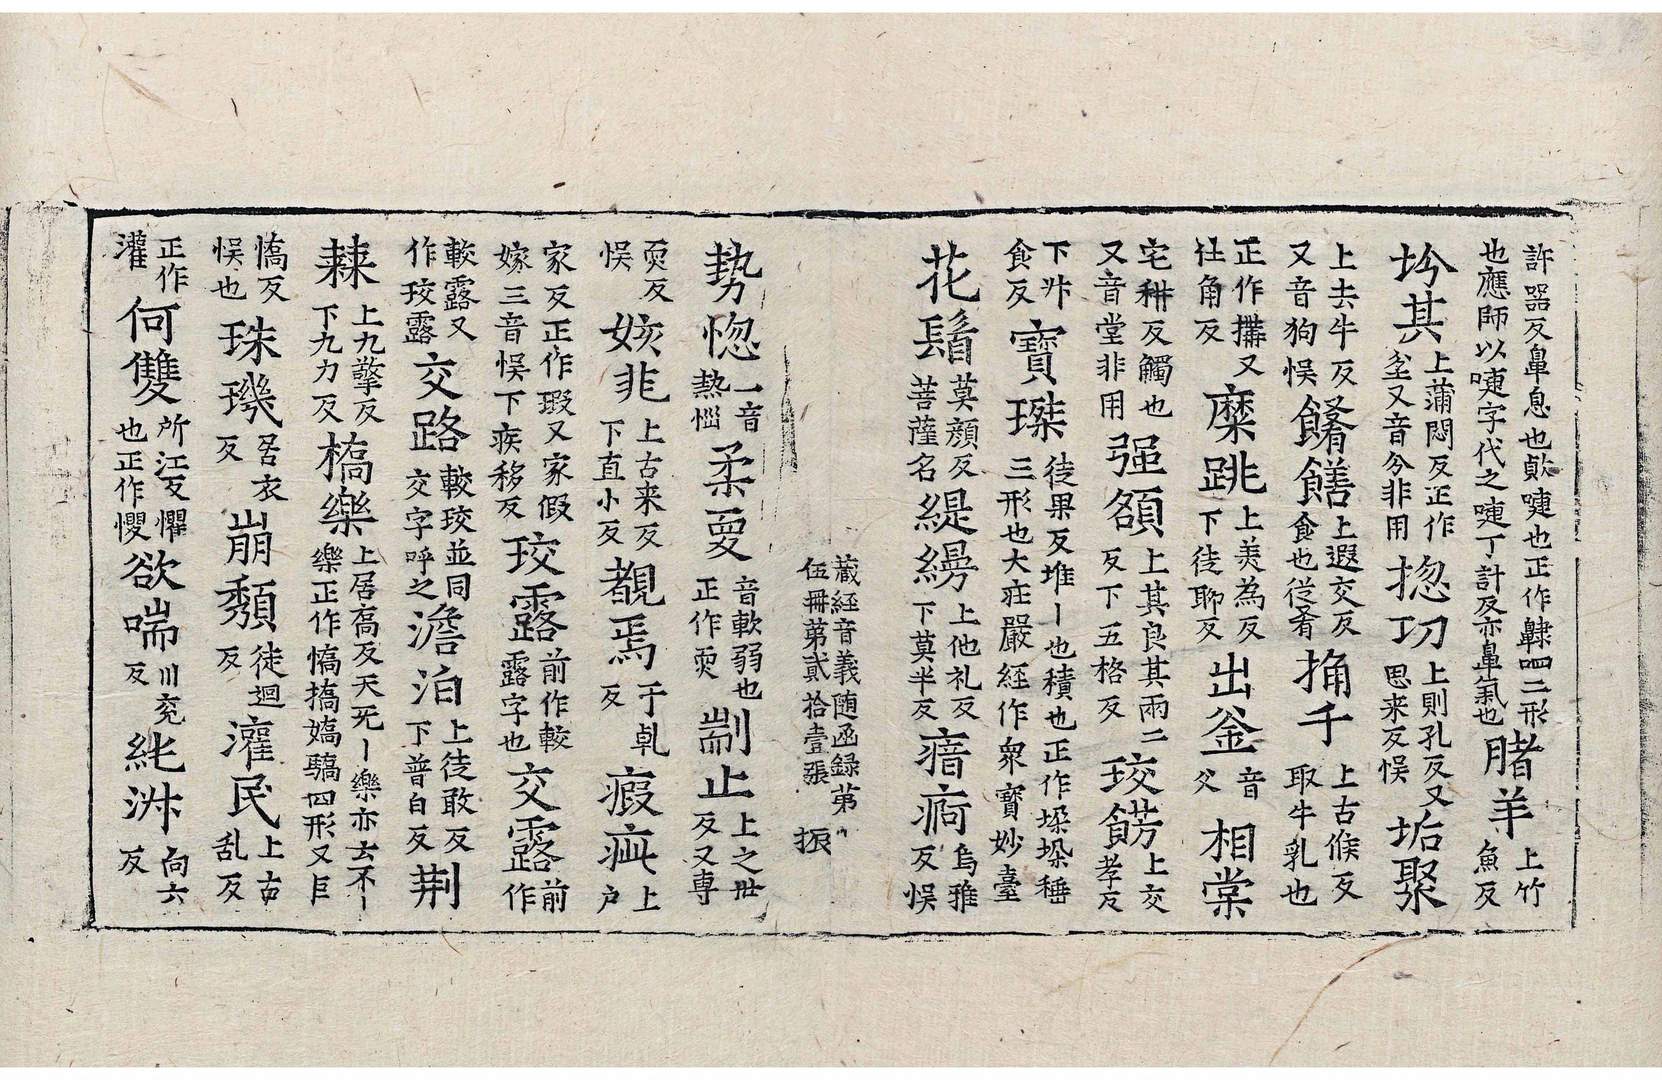 許器反鼻息也㰟嚏也正作𪖙呬二形
也應師以嚏字代之嚏丁計反亦鼻氣也䐗羊上竹魚反
坋其上蒲悶反正作坌又音分非用揔㓛上則孔反又思来反悮垢聚
上去牛反又音狗悮餚饍上遐交反食也從肴捅千上古候反取牛乳也
正作㩧又社角反糜跳上美為反下徒聊反出釜音父相棠
宅耕反觸也又音堂非用强額上其良其兩二反下五格反珓餝上交孝反
下歩食反寶㻮徒果反堆丨也積也正作垛垜𥠄三形也大莊嚴經作衆寶妙臺
花鬚莫顔反菩薩名緹縵上他礼反下莫半反瘖痾烏雅反悮
藏經音義随函録第八
伍冊第貳拾壹張 振
㔟惚一音熱惱柔耎音軟弱也正作耎剬止上之世反又専
耎反悮姟非上古来反下直小反覩焉于乹反瘕疵上戸
家反正作瑕又家假嫁三音悮下疾移反珓露前作較露字也交露前作
軟露又作珓露交路較珓並同交字呼之澹泊上徒敢反下普白反荆
棘上九擎反下九力反檇樂上居髙反天死丨樂亦云不丨樂正作憍撟嬌驕四形又巨
憍反悮也珠璣居衣反崩頽徒迴反灌民上古乱反
正作灌何雙所江反懼也正作戄欲喘川兖反純淋向六反